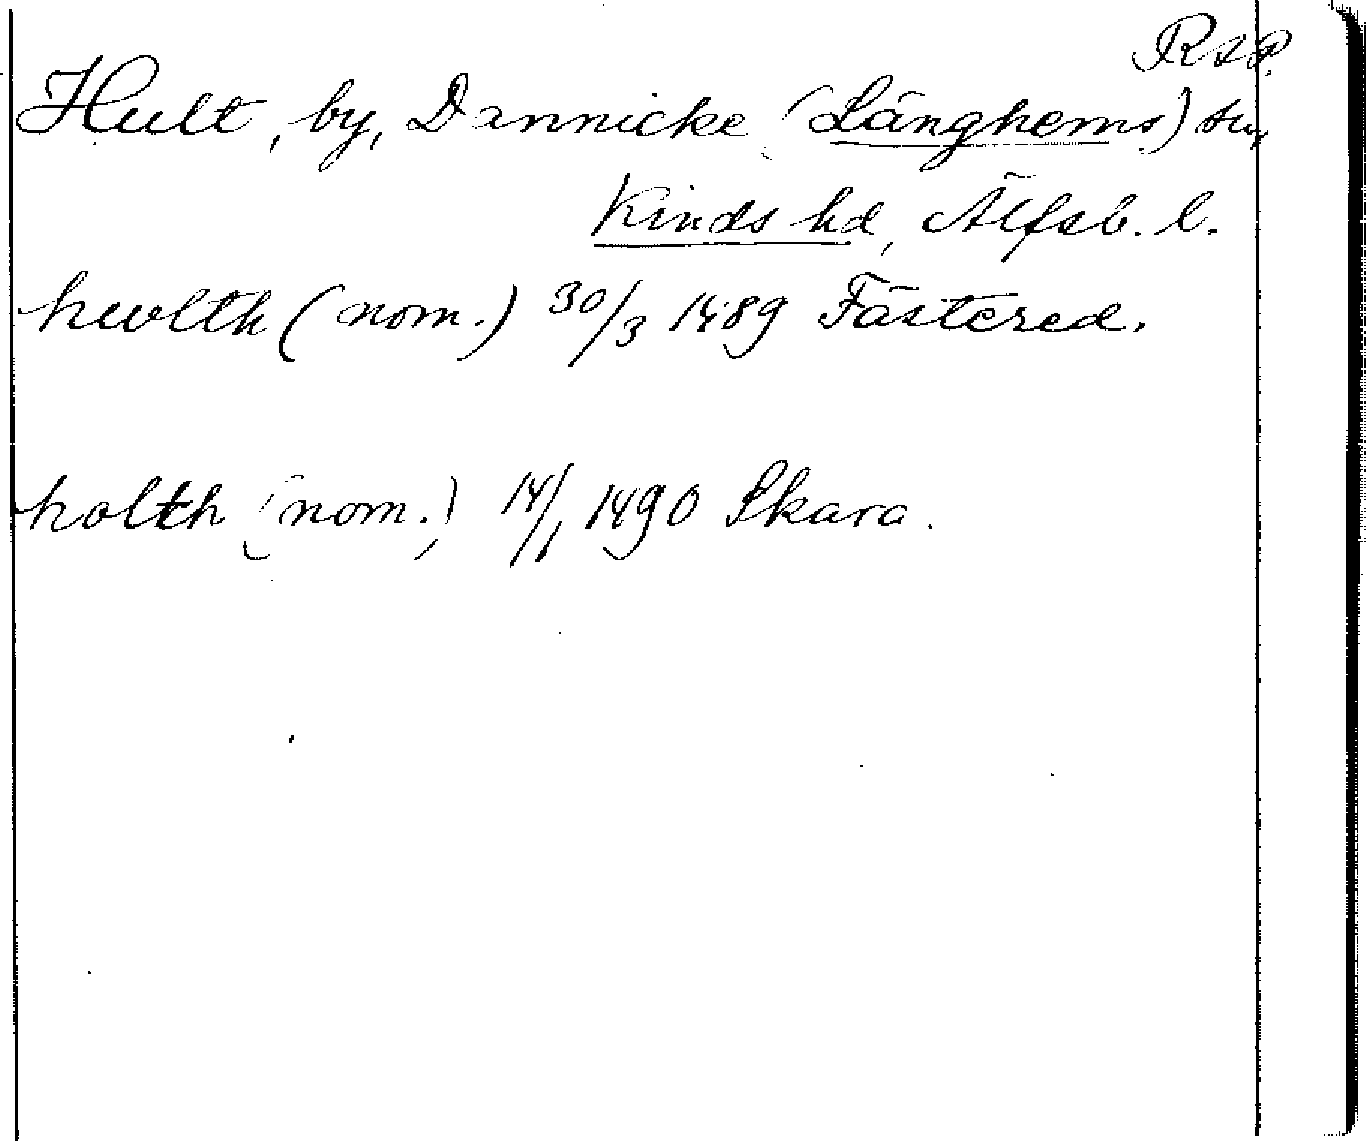 RAP.
Hult, by, Dannicke (Länghems) sn,
Kinds hd, Älfsb. l.
hwlth (nom.) 30/3 1489 Fästered.
holth (nom.) 14/1 1490 Skara.